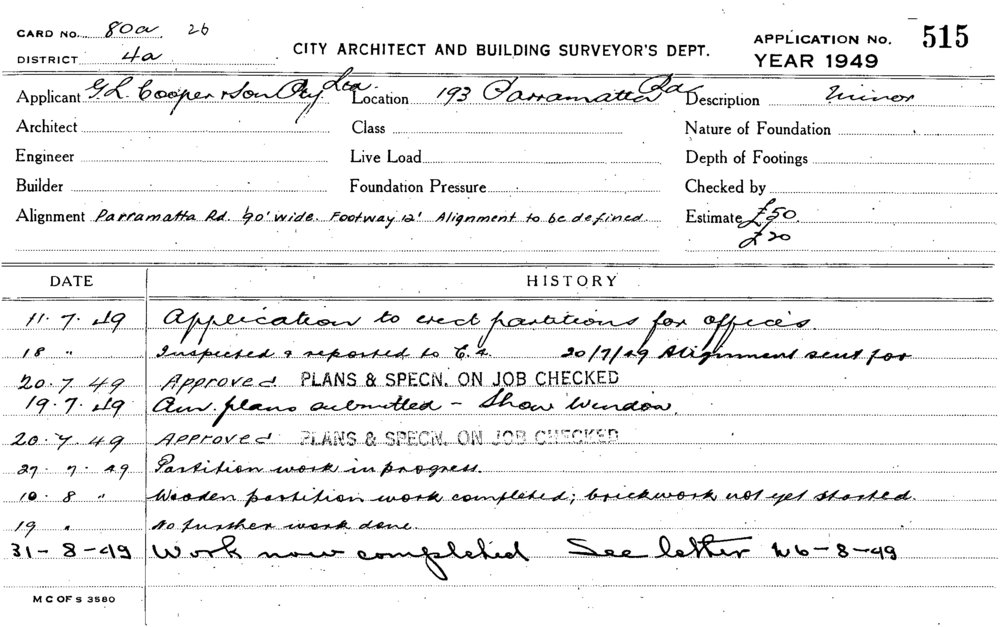 CARD NO. 80a 26
DISTRICT 4a
CITY ARCHITECT AND BUILDING SURVEYOR'S DEPT.
APPLICATION No. 515
YEAR 1949
Applicant G.L. Cooper & Son Pty Ltd. Location 193 Parramatta Rd Description Minor
Architect Class Nature of Foundation
Engineer Live Load Depth of Footings
Builder Foundation Pressure Checked by
Alignment Parramatta Rd. 90' wide. Footway 12' Alignment to be defined. Estimate £50.
£20
DATE HISTORY
11.7.49 Application to erect partitions for offices.
18 " Inspected & reported to C.A. 20/7/49 Alignment sent for
20.7.49 Approved PLANS & SPECN. ON JOB CHECKED
19.7.49 Am. plans submitted - Show Window.
20.7.49 Approved PLANS & SPECN. ON JOB CHECKED
27.7.49 Partition work in progress.
10.8 " Wooden partition work completed; brickwork not yet started.
19 " No further work done.
31-8-49 Work now completed See letter 26-8-49
M C OF S 3580